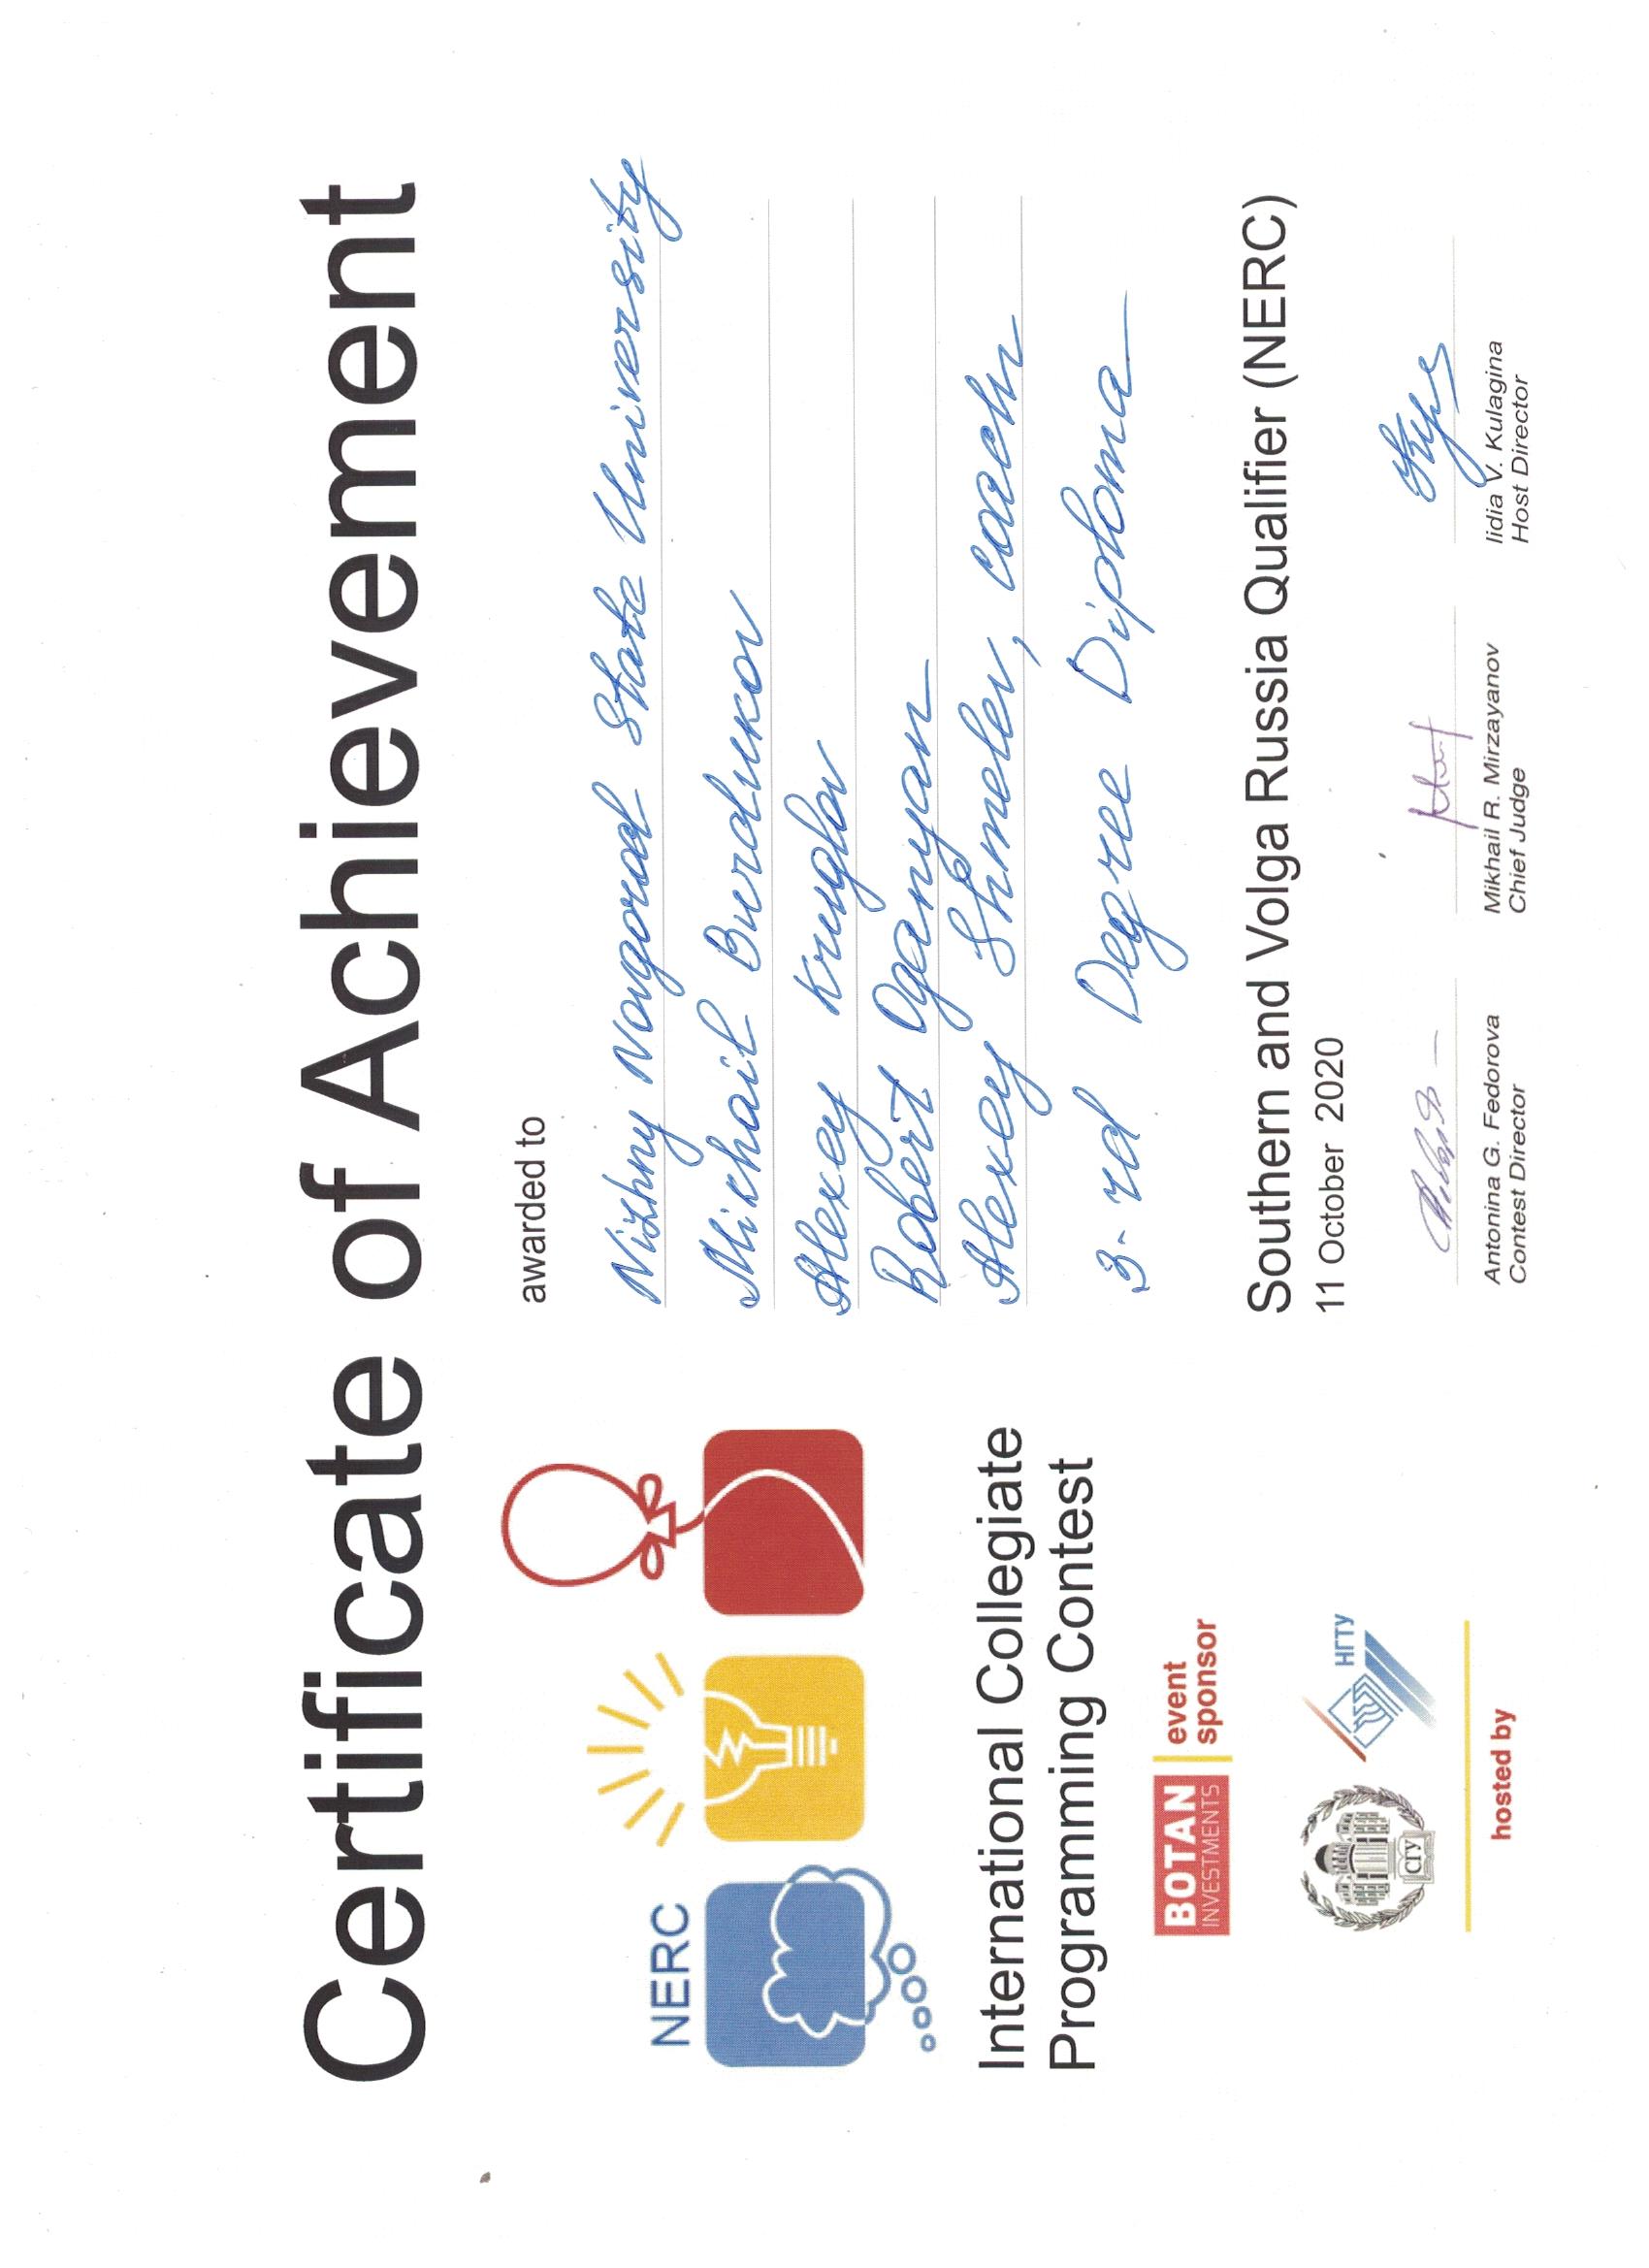 Certificate of Achievement
NERC
International Collegiate
Programming Contest
BOTAN
INVESTMENTS
event
sponsor
СГУ
НГТУ
hosted by
awarded to
Nizhny Novgorod State University
Mikhail Burdukov
Alexey Kruglov
Robert Oganyan
Alexey Shmelev, coach
3-rd Degree Diploma
Southern and Volga Russia Qualifier (NERC)
11 October 2020
Antonina G. Fedorova
Contest Director
Mikhail R. Mirzayanov
Chief Judge
lidia V. Kulagina
Host Director